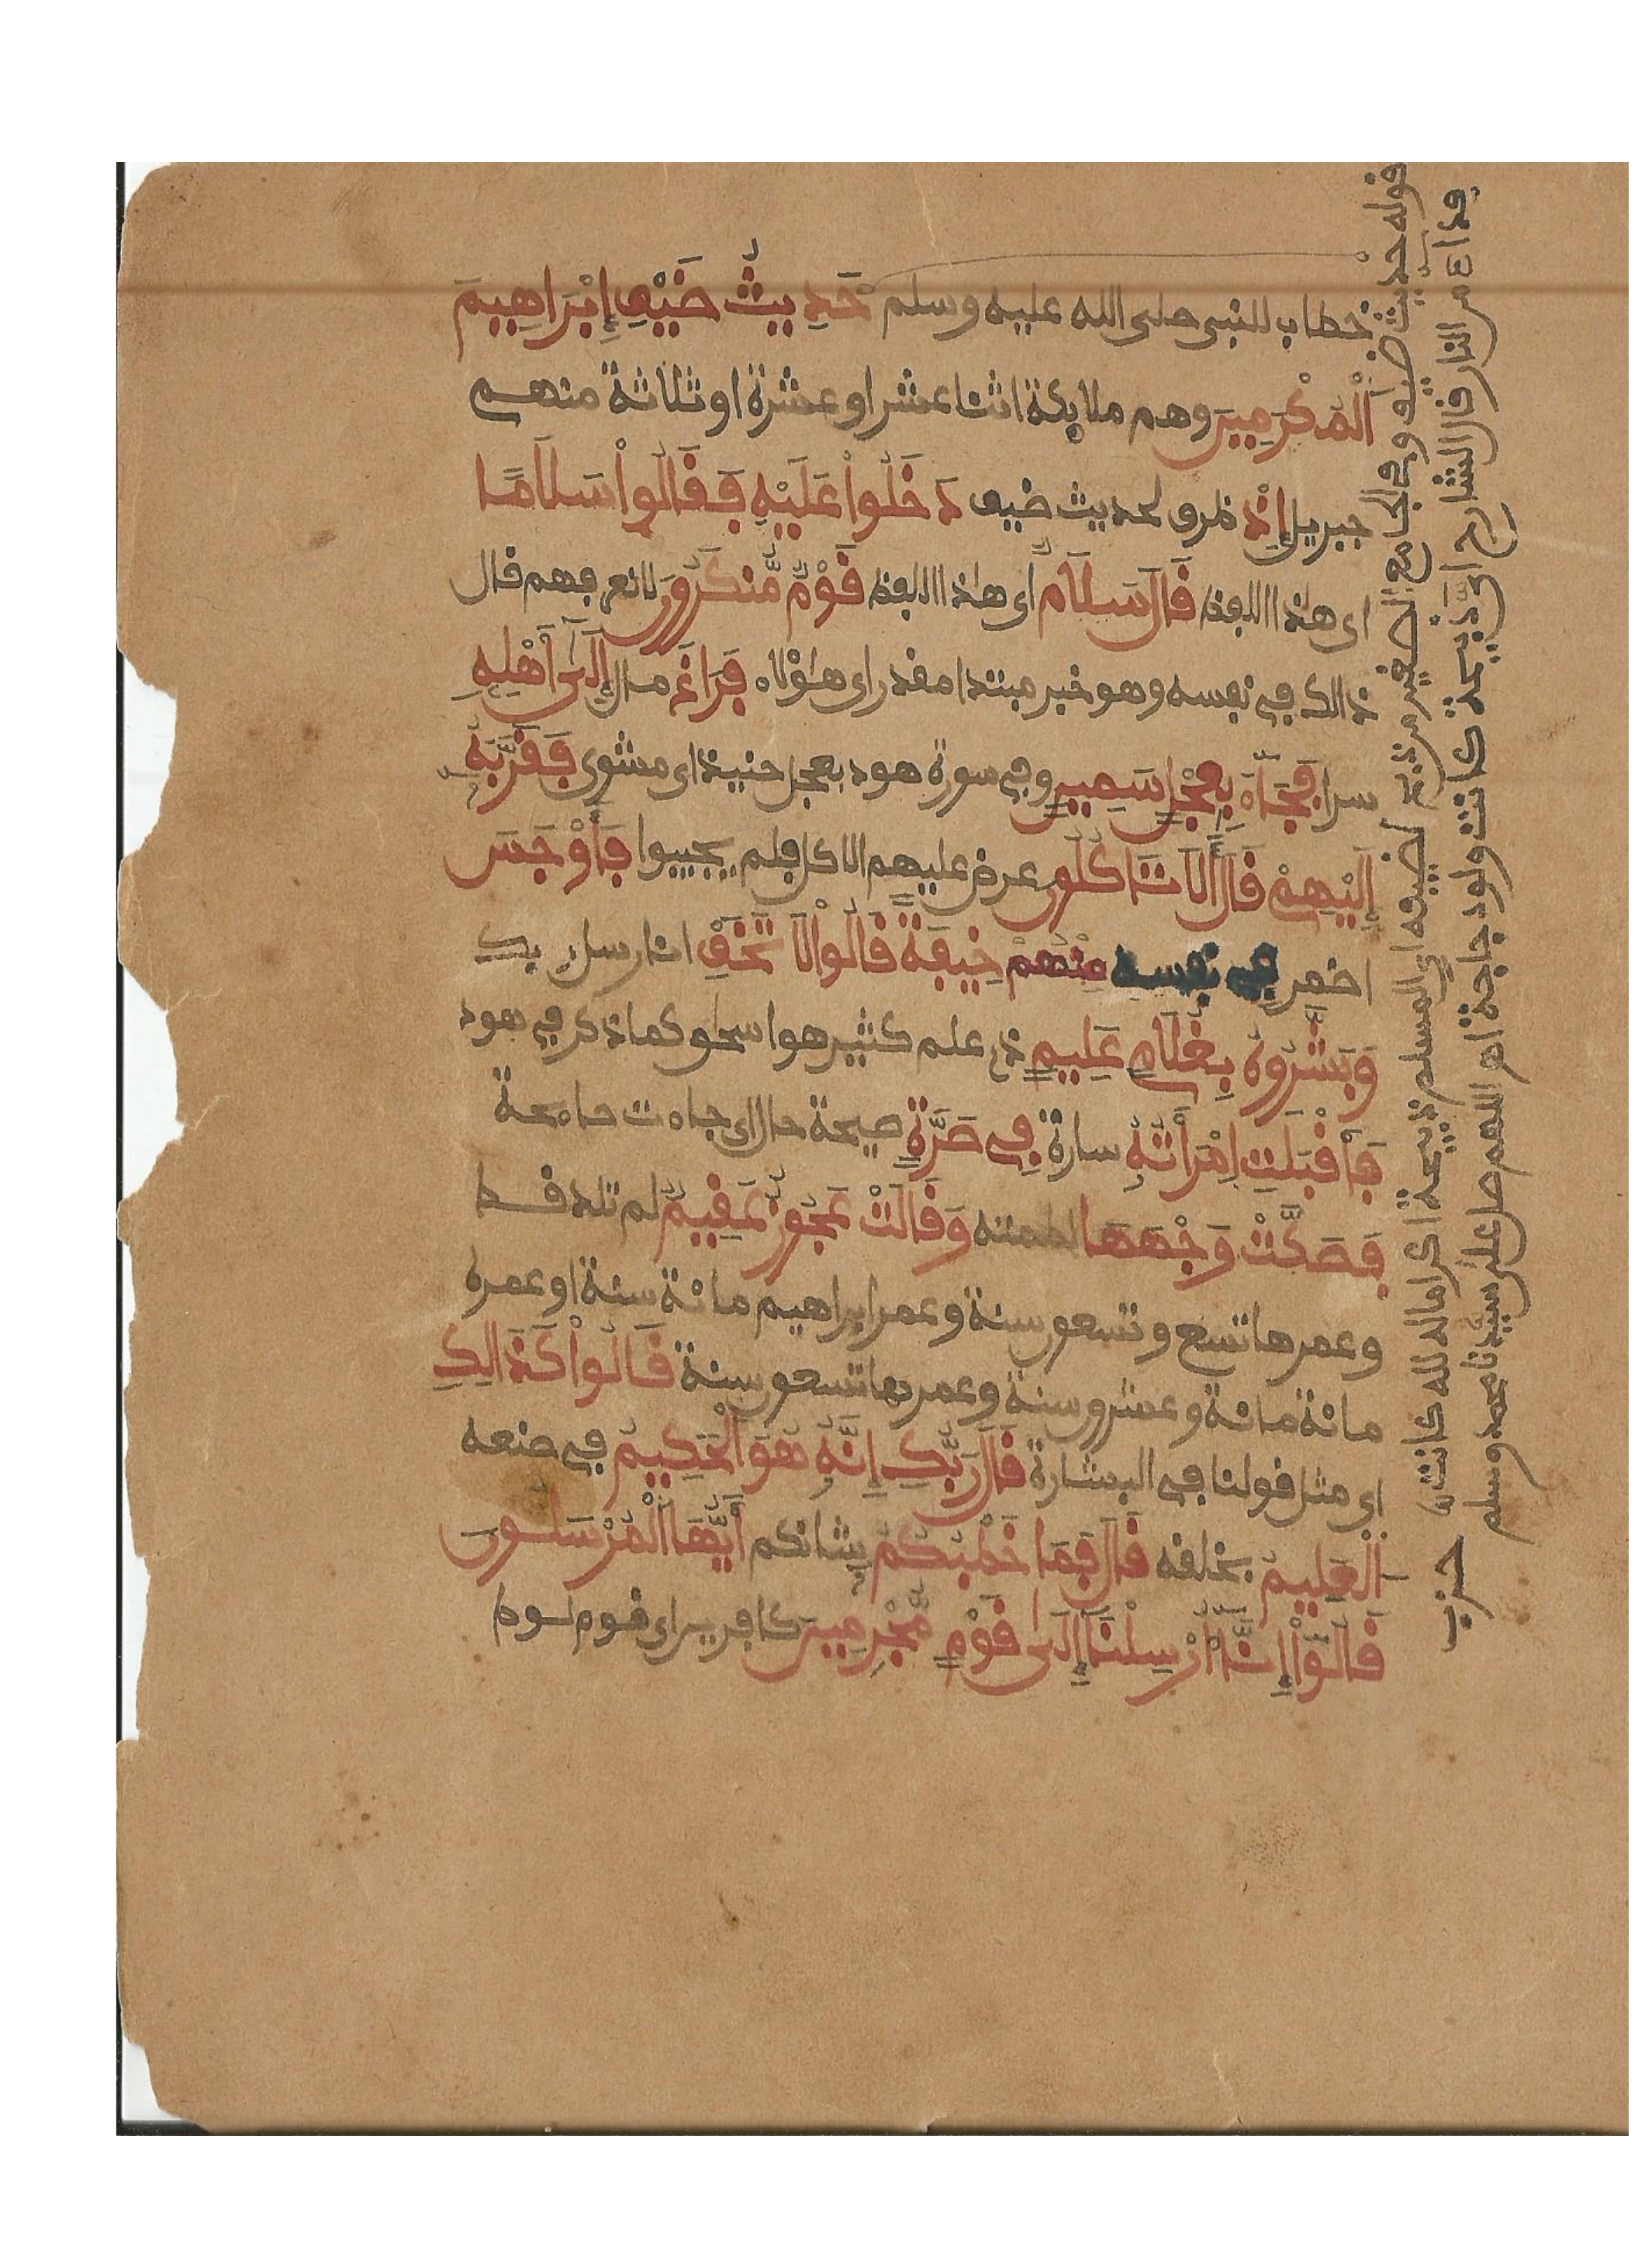 خطاب للنبي صلى الله عليه وسلم حَدِيثُ ضَيْفِ إِبْرَاهِيمَ
اَلْمُكْرَمِينَ وهم ملايكة اثنا عشر او عشرة او ثلاثة منهم
جبريل إِذْ ظرف لحديث ضيف دَخَلُواْ عَلَيْهِ فَقَالُواْ سَلَامًا
اي هذا اللفظ قَالَ سَلَامٌ اي هذا اللفظ قَوْمٌ مُّنكَرُونَ لا نعرفهم قال
ذالك في نفسه وهو خبر مبتدا مقدر اي هؤلاء فَرَاغَ مال إِلَىٰ أَهْلِهِ
سرا فَجَآءَ بِعِجْلٍ سَمِينٍ وفي سورة هود بعجل حنيذ اي مشوي فَقَرَّبَهُ
إِلَيْهِمْ قَالَ أَلَا تَاكُلُونَ عرض عليهم الاكل فلم يجيبوا فَأَوْجَسَ
اضمر في نفسه مِنْهُمْ خِيفَةً قَالُواْ لَا تَخَفِ انا رسل ربك
وَبَشَّرُوهُ بِغُلَامٍ عَلِيمٍ ذي علم كثير هو اسحق كما ذكر في هود
فَأَقْبَلَتِ اِمْرَأَتُهُ سارة فِي صَرَّةٍ صيحة حال اي جاءت صائحة
فَصَكَّتْ وَجْهَهَا لطمته وَقَالَتْ عَجُوزٌ عَقِيمٌ لم تلد قط
وعمرها تسع وتسعون سنة وعمر ابراهيم مائة سنة او عمره
مائة مائة وعشرون سنة وعمرها تسعون سنة قَالُواْ كَذَالِكِ
اي مثل قولنا في البشارة قَالَ رَبُّكِ إِنَّهُ هُوَ الْحَكِيمُ في صنعه
الْعَلِيمُ بخلقه قَالَ فَمَا خَطْبُكُمْ شانكم أَيُّهَا الْمُرْسَلُونَ
قَالُوٓاْ إِنَّآ أُرْسِلْنَآ إِلَىٰ قَوْمٍ مُّجْرِمِينَ كافرين اي قوم لوط
قوله حديث ضيف وفي الجامع الصغير من ذبح لضيفه اي المسلم ذبيحة اكراما له لله كانت
فداءه من النار قال الشارح اي ذبيحة كانت ولو دجاجة اه اللهم صل على سيدنا محمد وسلم
حزب